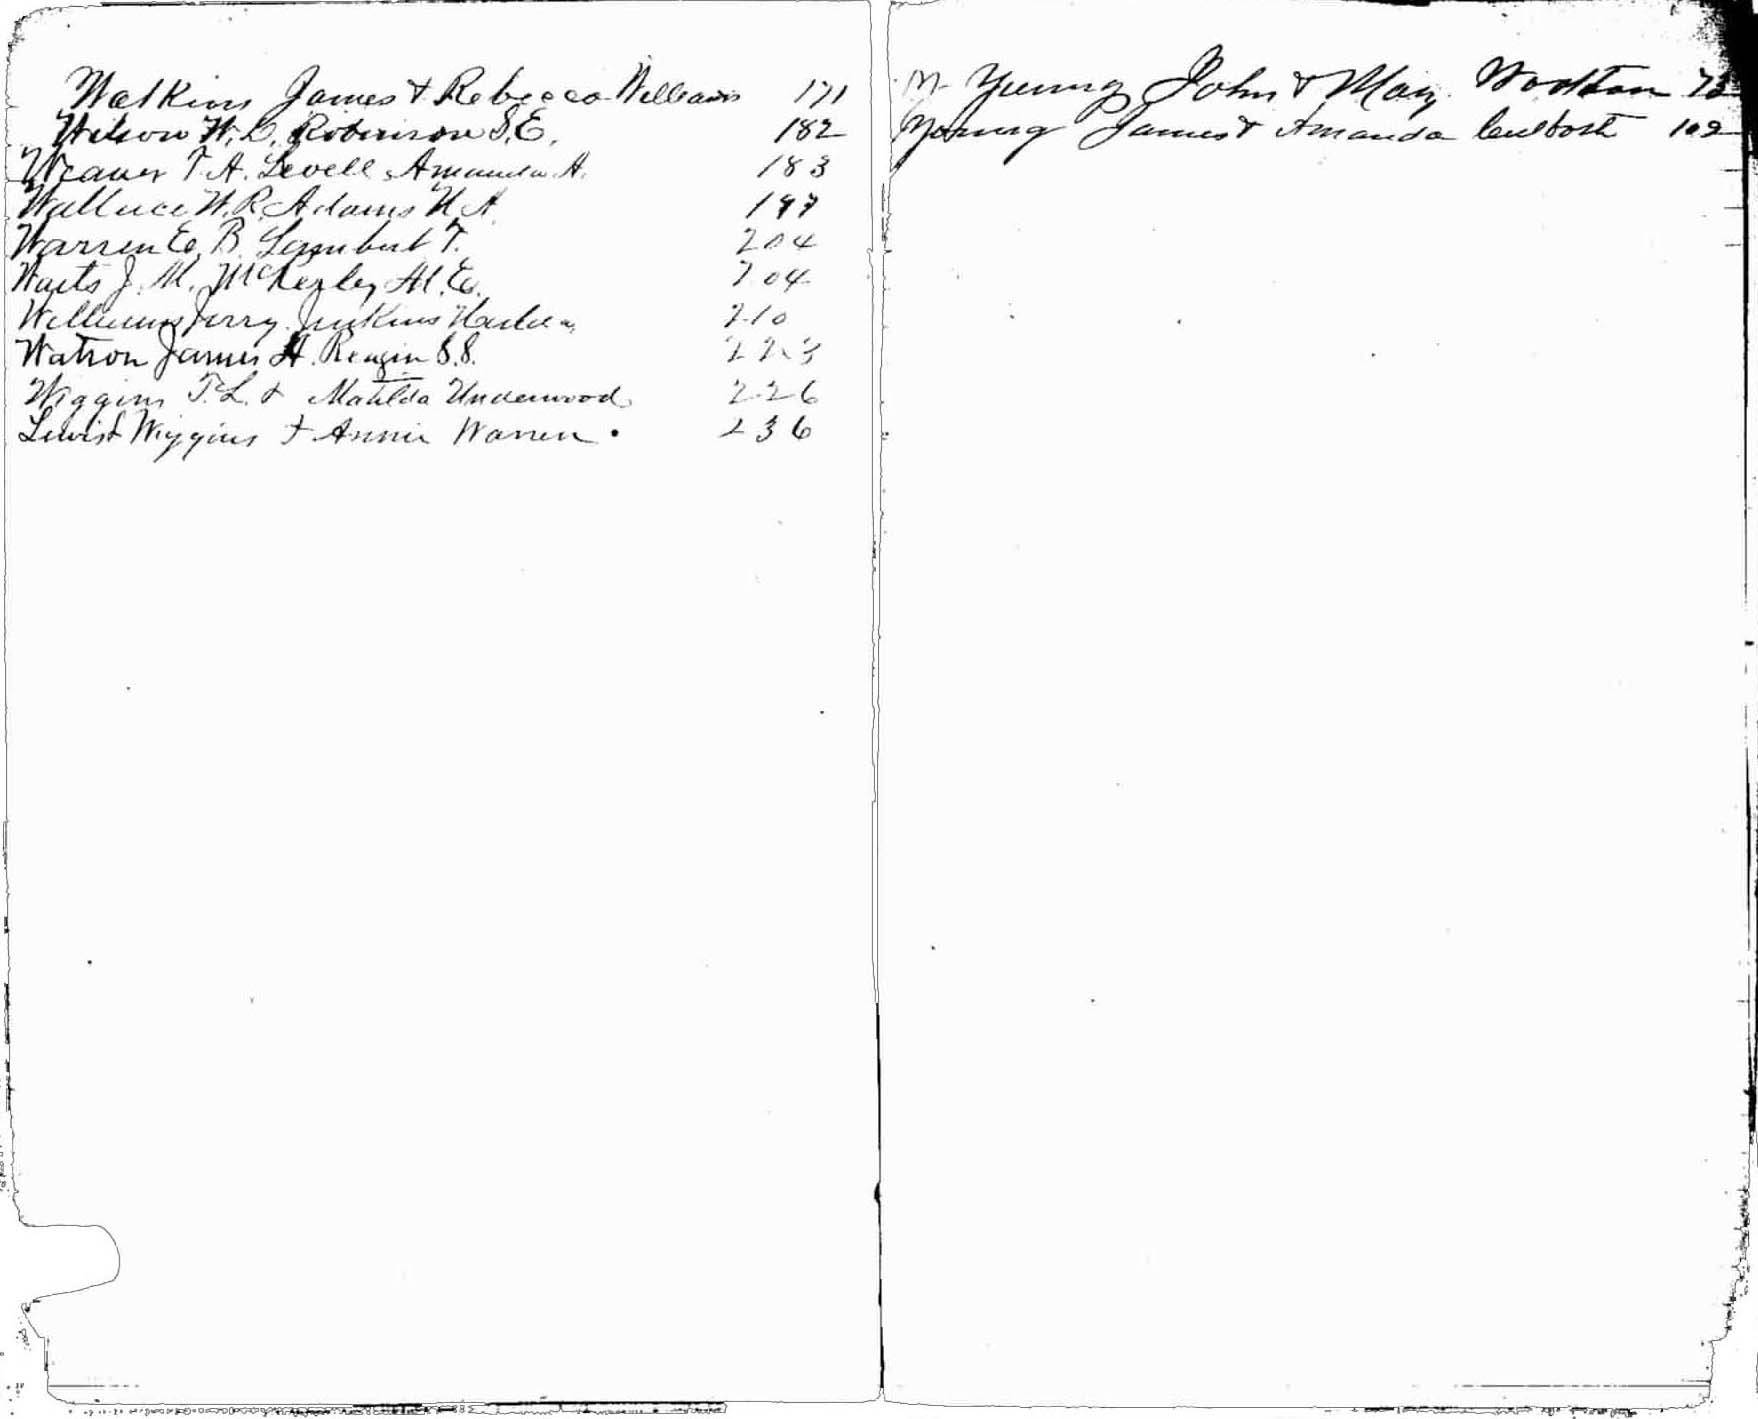 Watkins James & Rebecca Williams 171
Wilson W. D. Robinson S. E. 182
Weaver T. A. Levell Amanda A. 183
Wallace W. R. Adams N. A. 197
Warren E. B. Lambert T. 204
Waits J. M. McKegley M. E. 204
Williams Jerry Jinkins 210
Watson James H. Reagin S. S. 223
Wiggins T. L. & Matilda Underwood 226
Lewis Wiggins & Annie Warren 236
Young John & May 73
Young James & Amanda 102